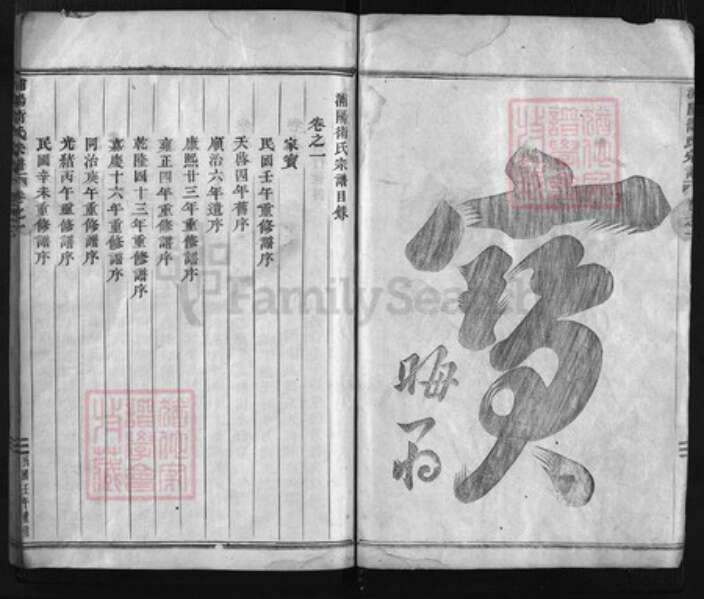 寶
晦翁
浦陽衛氏宗譜目錄
卷之一
家寶
民國壬午重修譜序
天啓四年舊序
順治六年遺序
康熙廿三年重修譜序
雍正四年重修譜序
乾隆四十三年重修譜序
嘉慶十六年重修譜序
同治庚午重修譜序
光緒丙午重修譜序
民國辛未重修譜序
FamilySearch